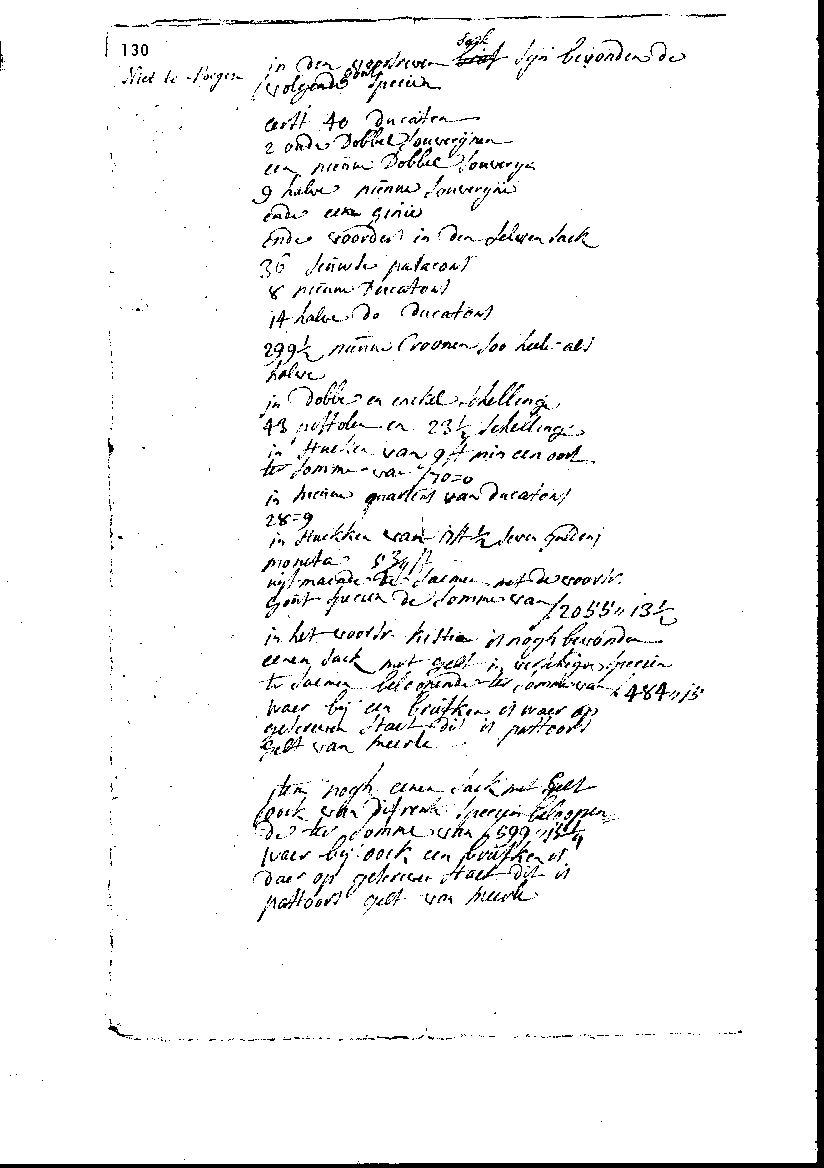 130
Niet te voegen
in den sack sijn bevonden de
volgende gout specien
eerst 40 ducaten
2 oude dobbel souvereijnen
een nieuw dobbel souvereyn
9 halve nieuwe souvereyne
ende eene ginie
ende voorders in den selven sack
36 patacons
8 nieuw ducatons
14 halve do ducatons
299½ nieuw croonen soo heele als
halve
in dobbel en enckel schellinge
43 pistolen en 23½ schellinge
in stucken van 9 st min een oort
ter somme van f 70=0
in nieuwe quarten van ducatons
28=9
in stuckken van
moneta
uijtmaende te saemen met de voorsr.
gout specien de somme van f 2055„13½
in het voorsr. kistien is nogh bevonden
eenen sack met gelt in specien
te saemen beloopende ter somme van f 484„15
waer bij een briefken is waer op
geschreven staet dit is pastoors
gelt van meerle
item nogh eenen sack met gelt
oock van difrente specien beloopen
de ter somme van f 599„
waer bij oock een briefken is
daer op geschreven staet dit is
pastoors gelt van meerle